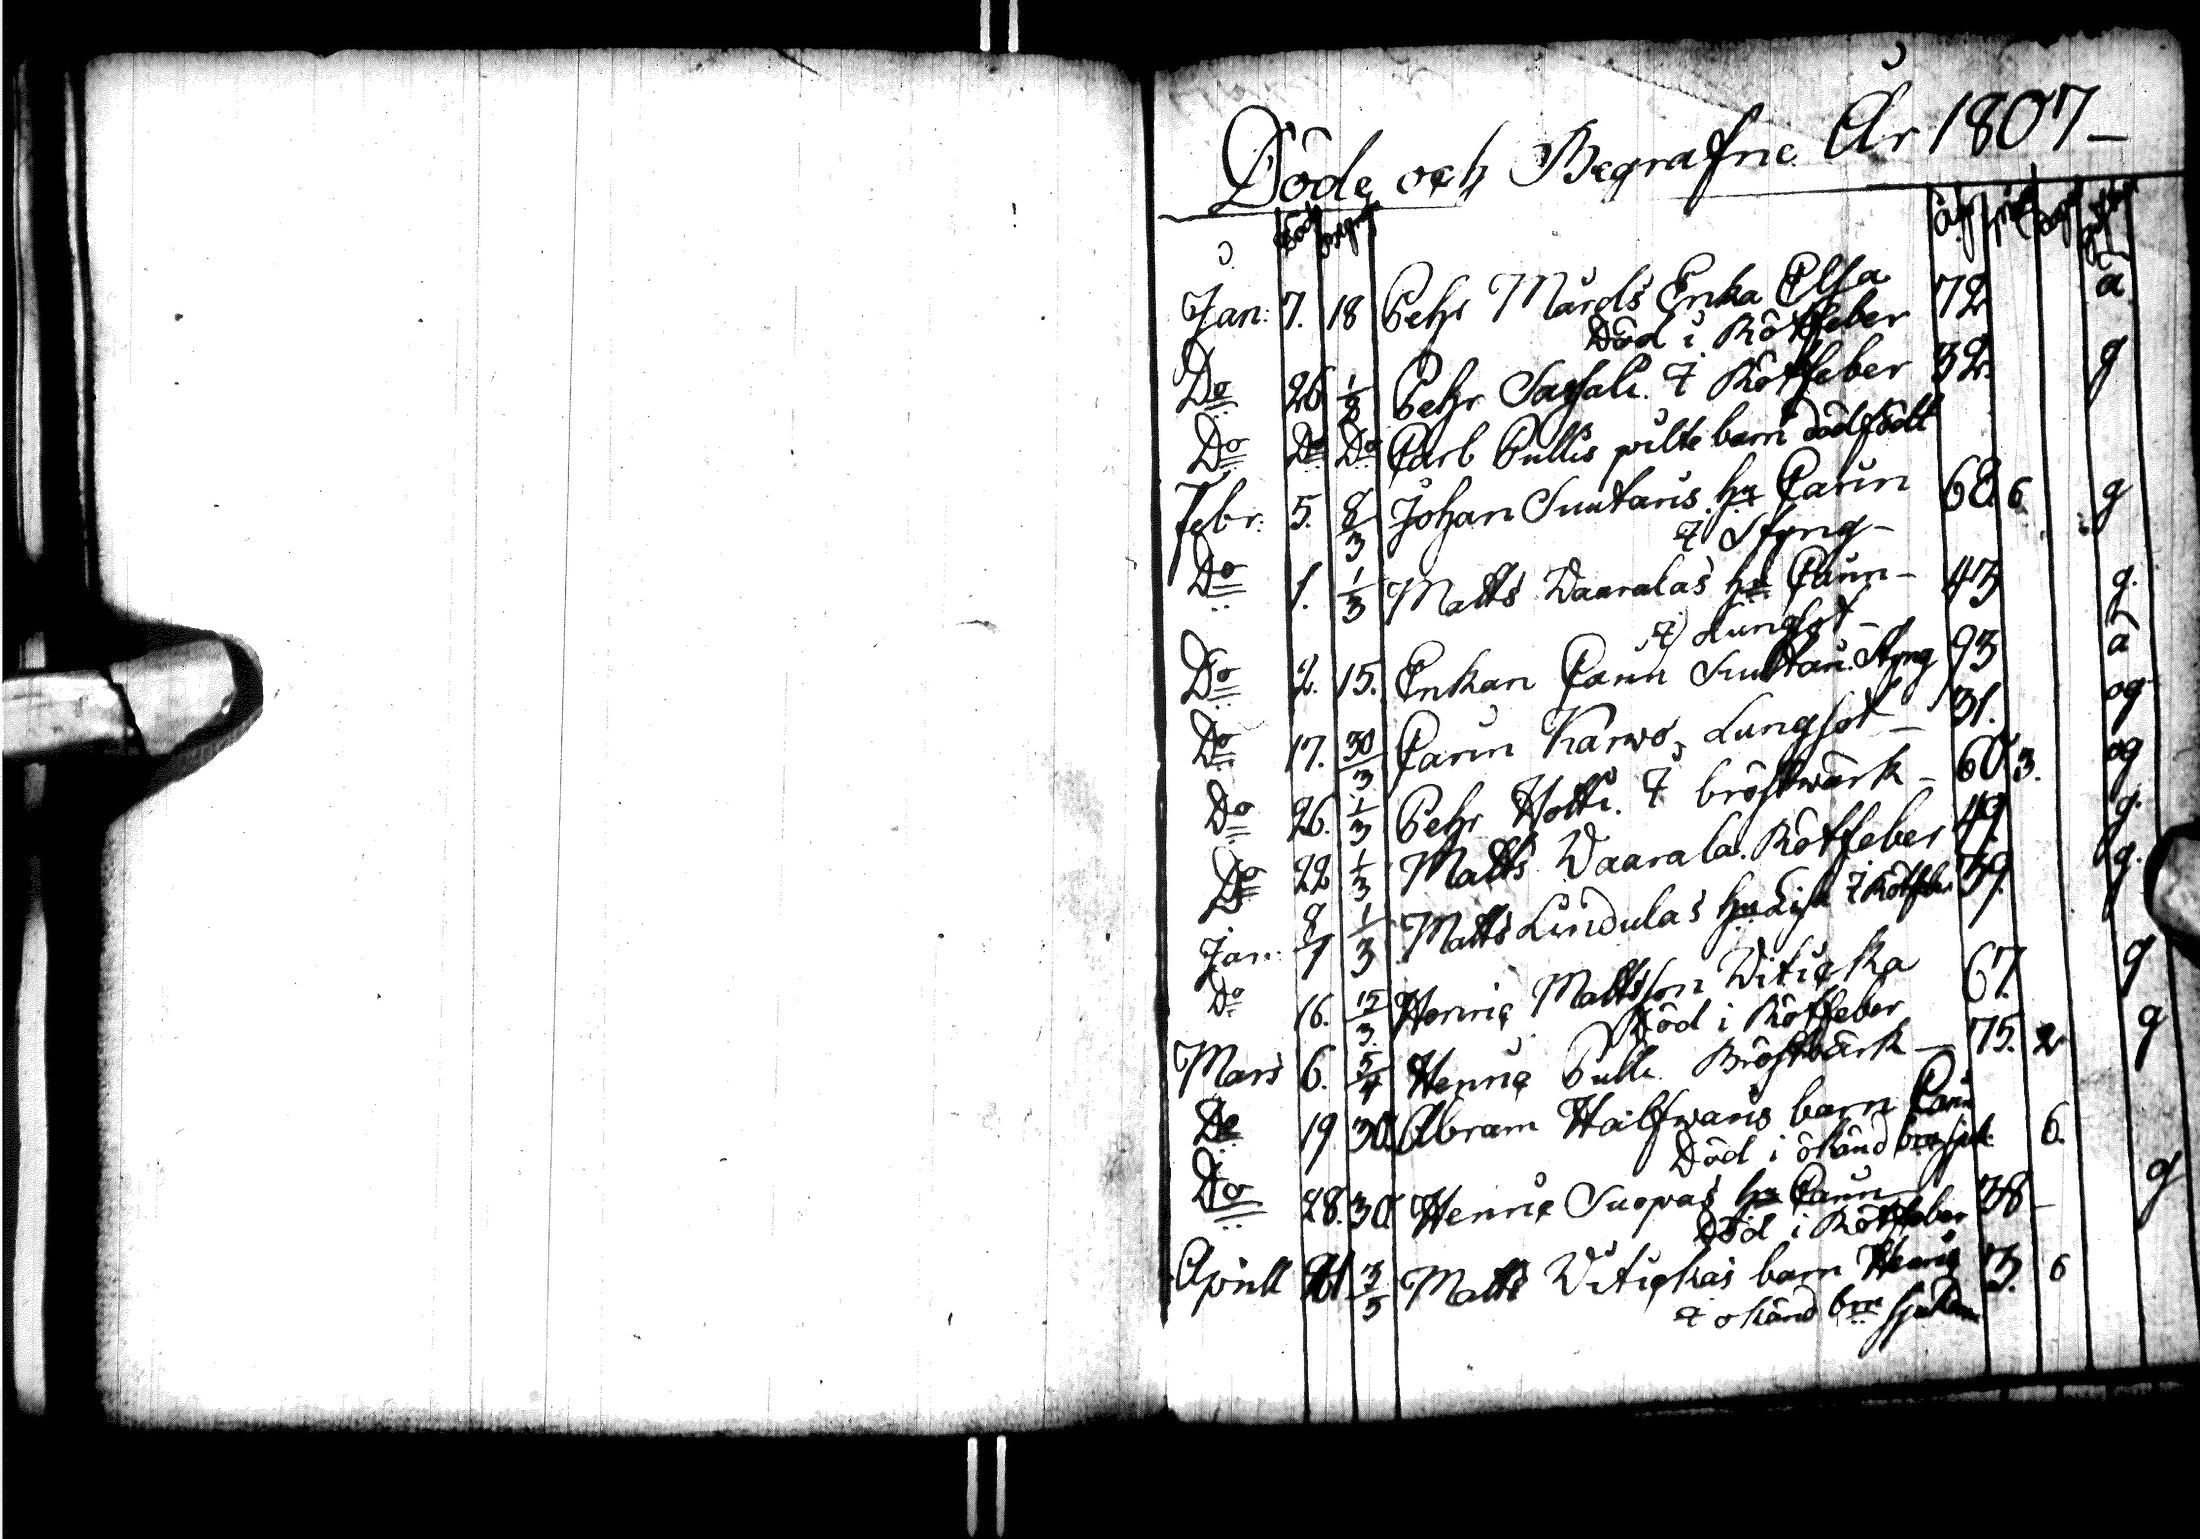 Döde och Begrafne År 1807 –
död begr: åhr
Jan: 7. 18 Pehr Mårds Enka Elsa 72 ä
Död i Rötfeber
Do 26 1/2 Pehr † Rötfeber 32. g
Do Do Do Carl Pullis pilte barn dödfödt
Febr: 5. 8/3 Johan Suutaris hu Carin 68. 6 g
† Styng –
Do 1. 1/3 Matts Waaralas hu Carin – 43 g.
† Lungsot –
Do 2. 15. Enkan Carin Suutari. Styng 93 ä
Do 17. 30/3 Carin Karwo, Lungsot – 31. og
Do 26. 1/3 Pehr Hotti. † bröstwärk – 60 3. og
Do 22 1/3 Matts Waarala. Rötfeber 49. g.
Jan: 8/1 1/3 Matts Lindulas hu Lisa † Rötfeber 39. g.
Do 16. 15/3. Henric Mattsson Witicka 67. g
Död i Rötfeber
Mars 6. 5/4 Henric Pulli. Bröstwärk – 75. 2 g
Do 19 30. Abram Halfwaris barn Carin 6.
Död i okänd barnsjuk:
Do 28. 30 Henric Suopas hu Carin 38 – g
Död i Rötfeber
Aprill 21 3/5 Matts Witickas barn Henric 3. 6
† okänd sjukdom